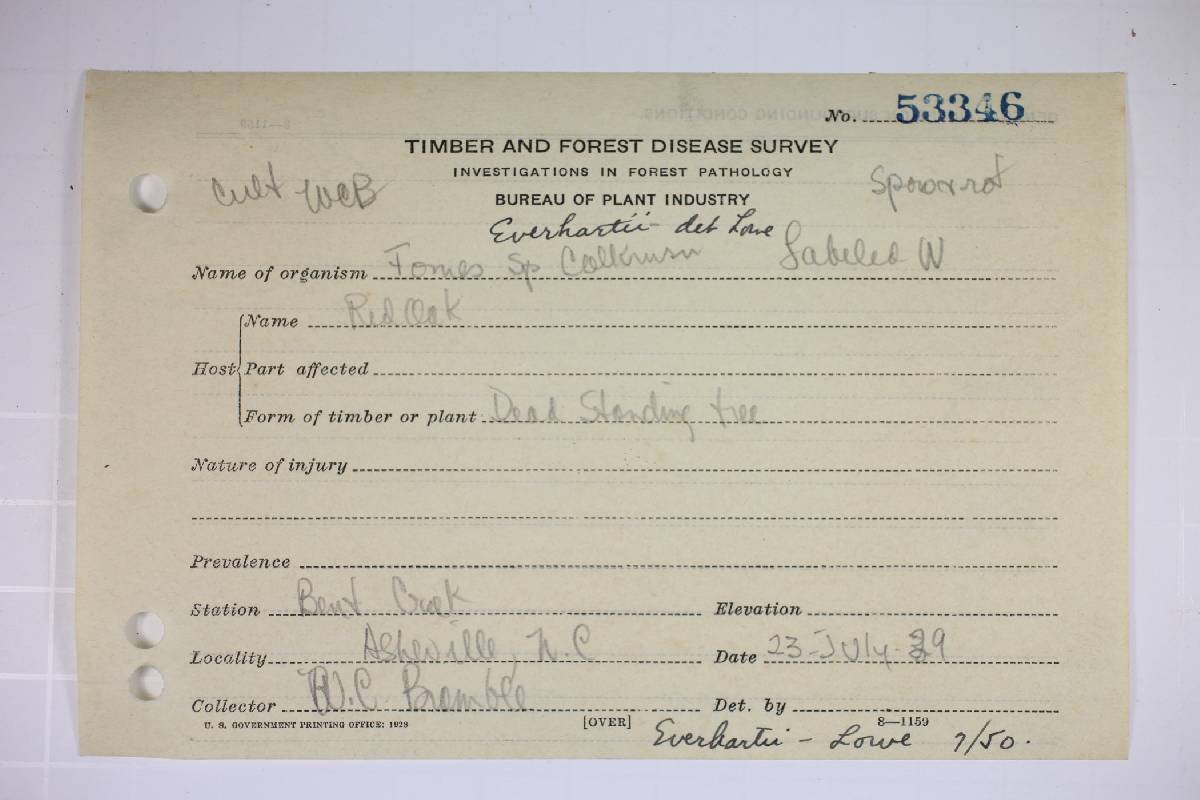 No. 53346
TIMBER AND FOREST DISEASE SURVEY
INVESTIGATIONS IN FOREST PATHOLOGY
Cult WCB
BUREAU OF PLANT INDUSTRY
Everhartii - det Lowe
Name of organism Fomes Sp Labeled W
Host
Name Red Oak
Part affected
Form of timber or plant Dead Standing tree
Nature of injury
Prevalence
Station Bent Creek
Elevation
Locality Asheville, N.C
Date 23-July-
Collector W.C. Bramble
Det. by
U. S. GOVERNMENT PRINTING OFFICE: 1928
[OVER]
8—1159
Everhartii - Lowe 7/50.